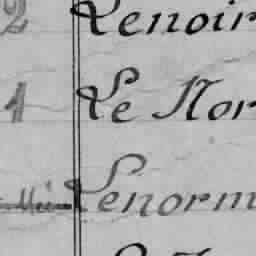 2 Lenoir
1 Le Nor
Lenorm